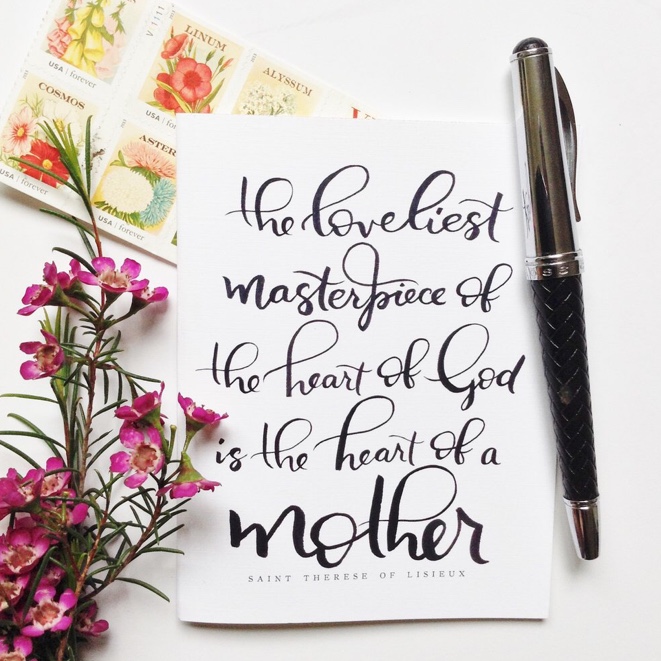 LINUM
USA | forever
ALYSSUM
COSMOS
USA | forever
ASTER
USA | forever
USA | forever
the loveliest
masterpiece of
the heart of God
is the heart of a
mother
SAINT THERESE OF LISIEUX